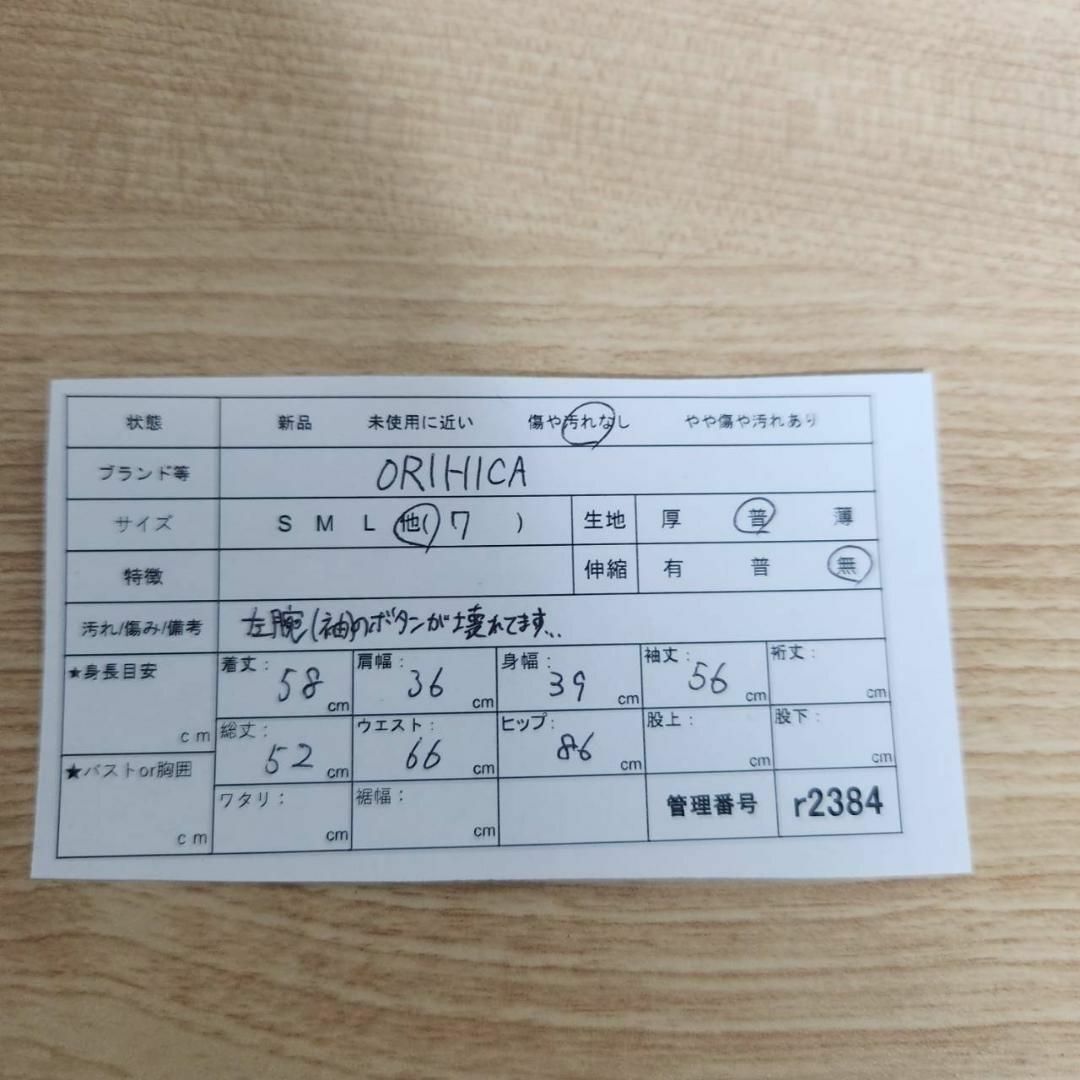 状態 新品 未使用に近い 傷や汚れなし やや傷や汚れあり
ブランド等 ORIHICA
サイズ S M L 他( 7 ) 生地 厚 普 薄
特徴 伸縮 有 普 無
汚れ/傷み/備考 左腕(袖)のボタンが壊れてます...
★身長目安 cm 着丈: 58 cm 肩幅: 36 cm 身幅: 39 cm 袖丈: 56 cm 裄丈: cm
総丈: 52 cm ウエスト: 66 cm ヒップ: 86 cm 股上: cm 股下: cm
★バストor胸囲 cm ワタリ: cm 裾幅: cm 管理番号 r2384